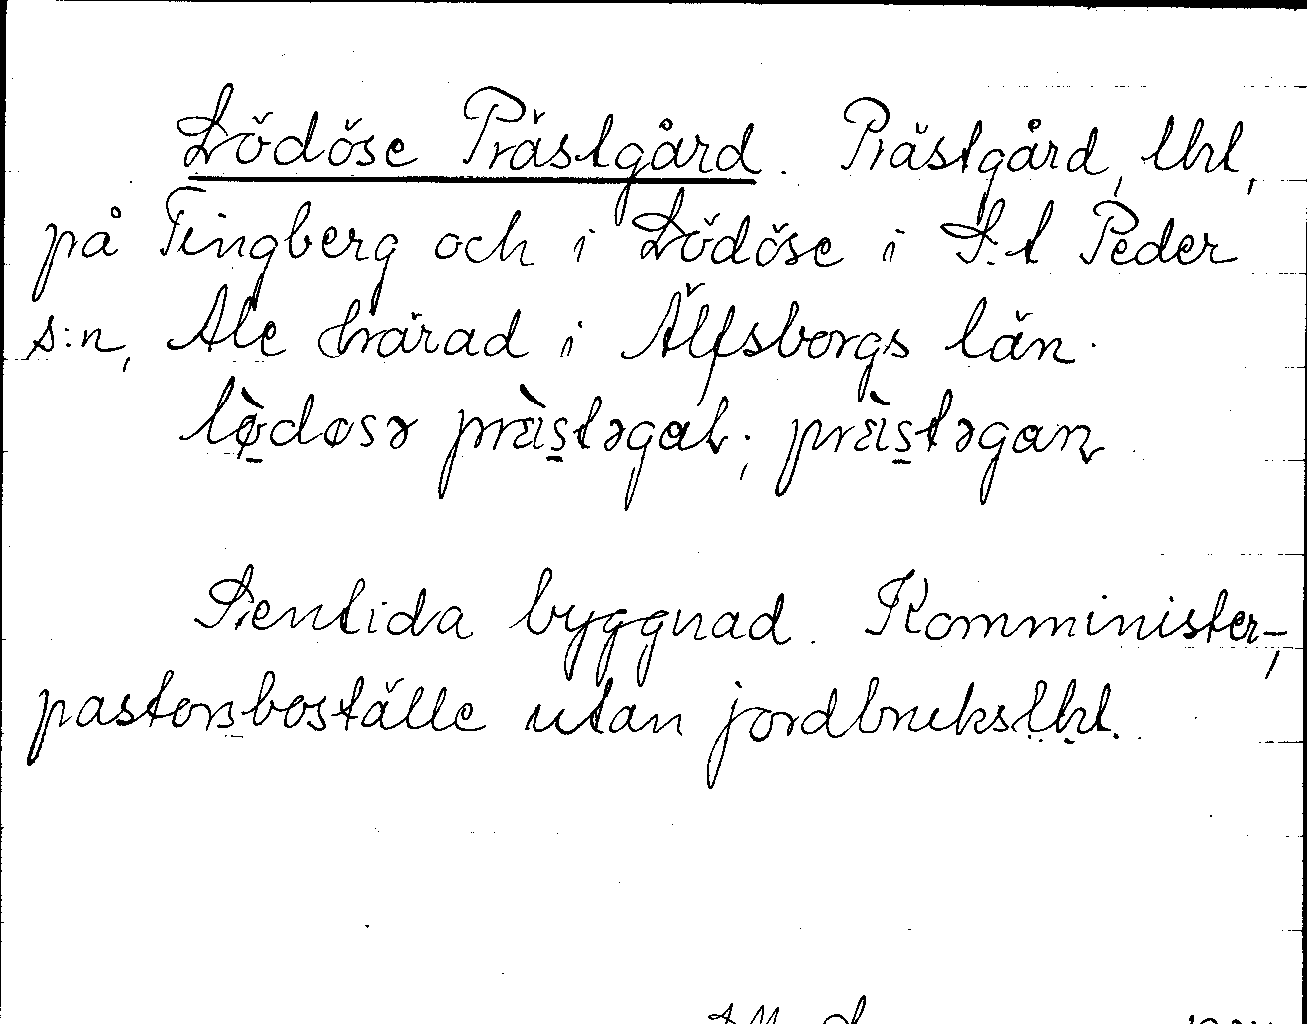 Lödöse Prästgård. Prästgård, lht,
på Tingberg och i Lödöse i S:t Peder
s:n, Ale härad i Älfsborgs län.
lø̀dosə prɛ̀istəgaɫ; prɛ̀istəgan
Sentida byggnad. Komminister-,
pastorsboställe utan jordbrukslht.